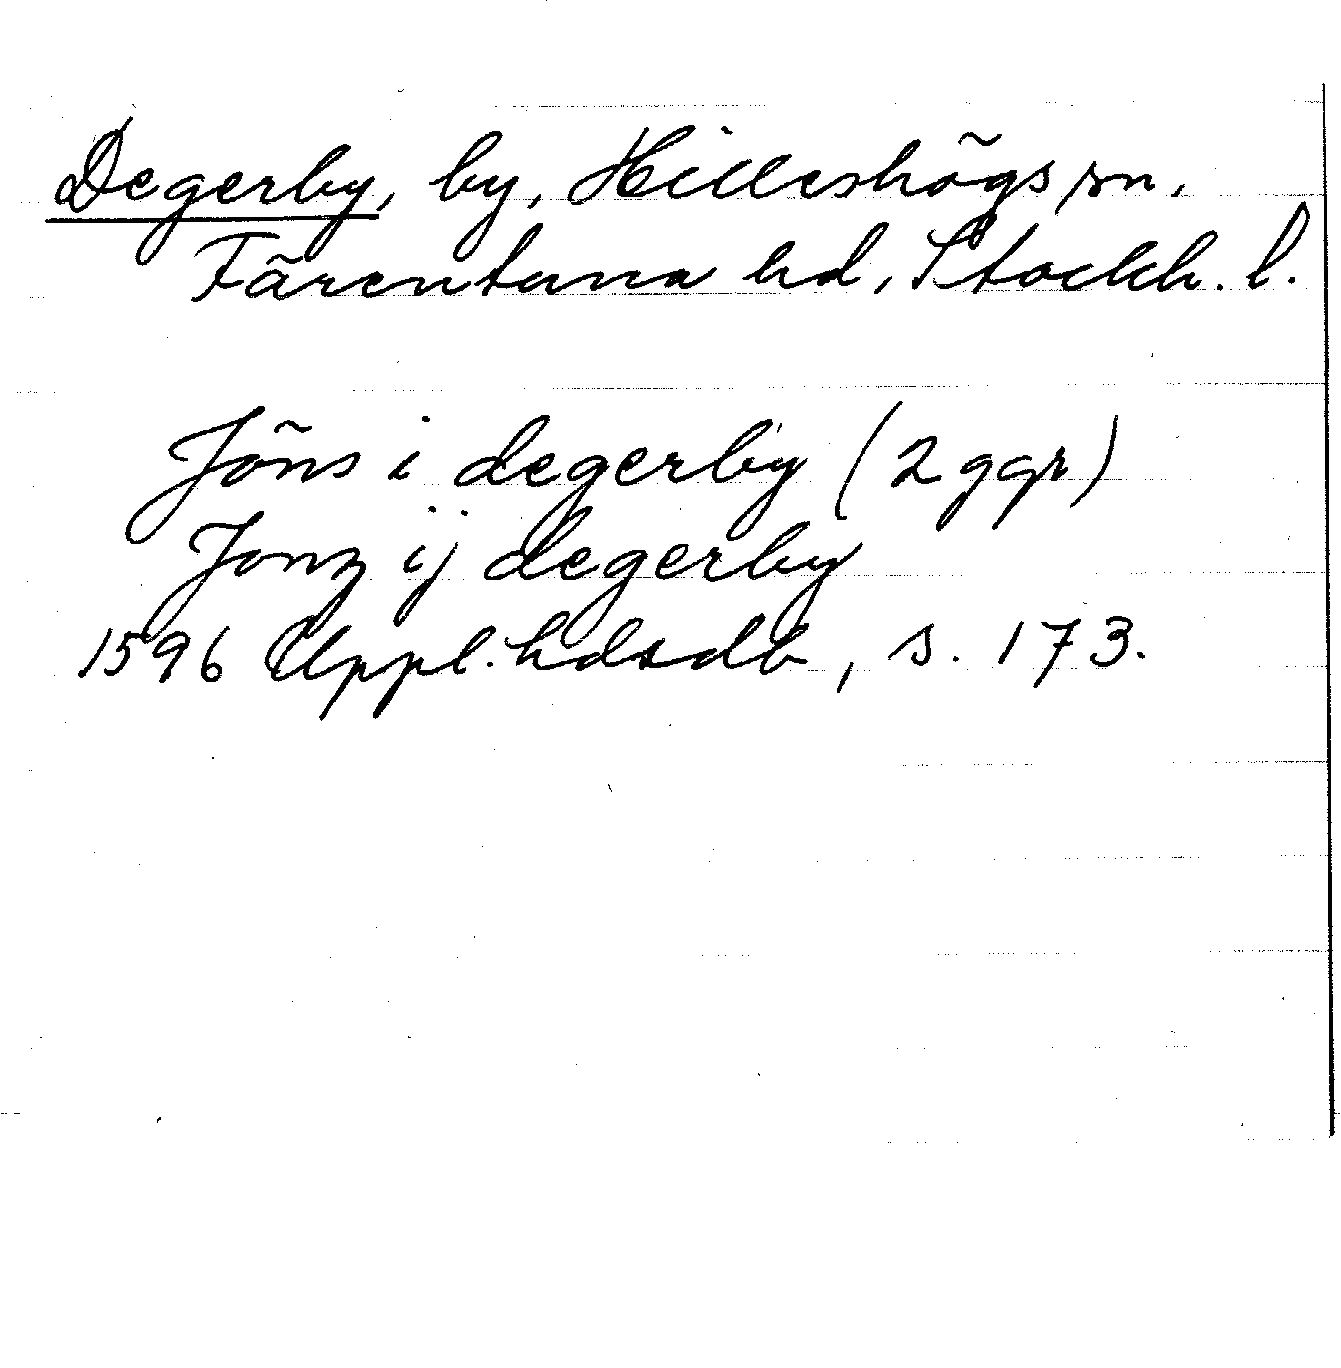 Degerby, by, Hilleshögs sn,
Färentuna hd, Stockh. l.
Jöns i degerby (2 ggr)
Jonz ij degerby
1596 Uppl. hdsdb, s. 173.